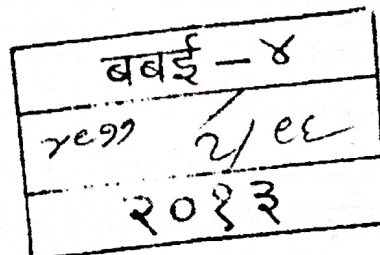 बबई – ४
४९११ २/९६
२०१३